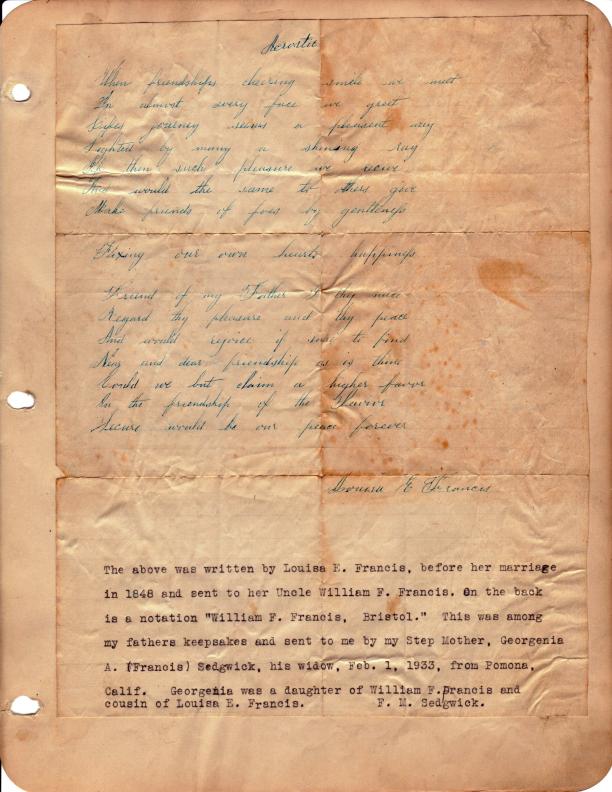 Acrostic
When friendships cheering smile we meet
In almost every face we greet
Lifes journey seems a pleasent way
Lighted by many a shining ray
If then such pleasure we recive
And would the same to others give
Make friends of foes by gentleness
Fixing our own hearts happiness
Friend of my Father I thy niece
Regard thy pleasure and thy peace
And would rejoice if to find
and dear friendship as is thine
Could we but claim a higher favor
In the friendship of the Savior
Secure would be our peace forever
Louisa E Francis
The above was written by Louisa E. Francis, before her marriage
in 1848 and sent to her Uncle William F. Francis. On the back
is a notation "William F. Francis, Bristol." This was among
my fathers keepsakes and sent to me by my Step Mother, Georgenia
A. (Francis) Sedgwick, his widow, Feb. 1, 1933, from Pomona,
Calif. Georgenia was a daughter of William F.Drancis and
cousin of Louisa E. Francis. F. M. Sedgwick.